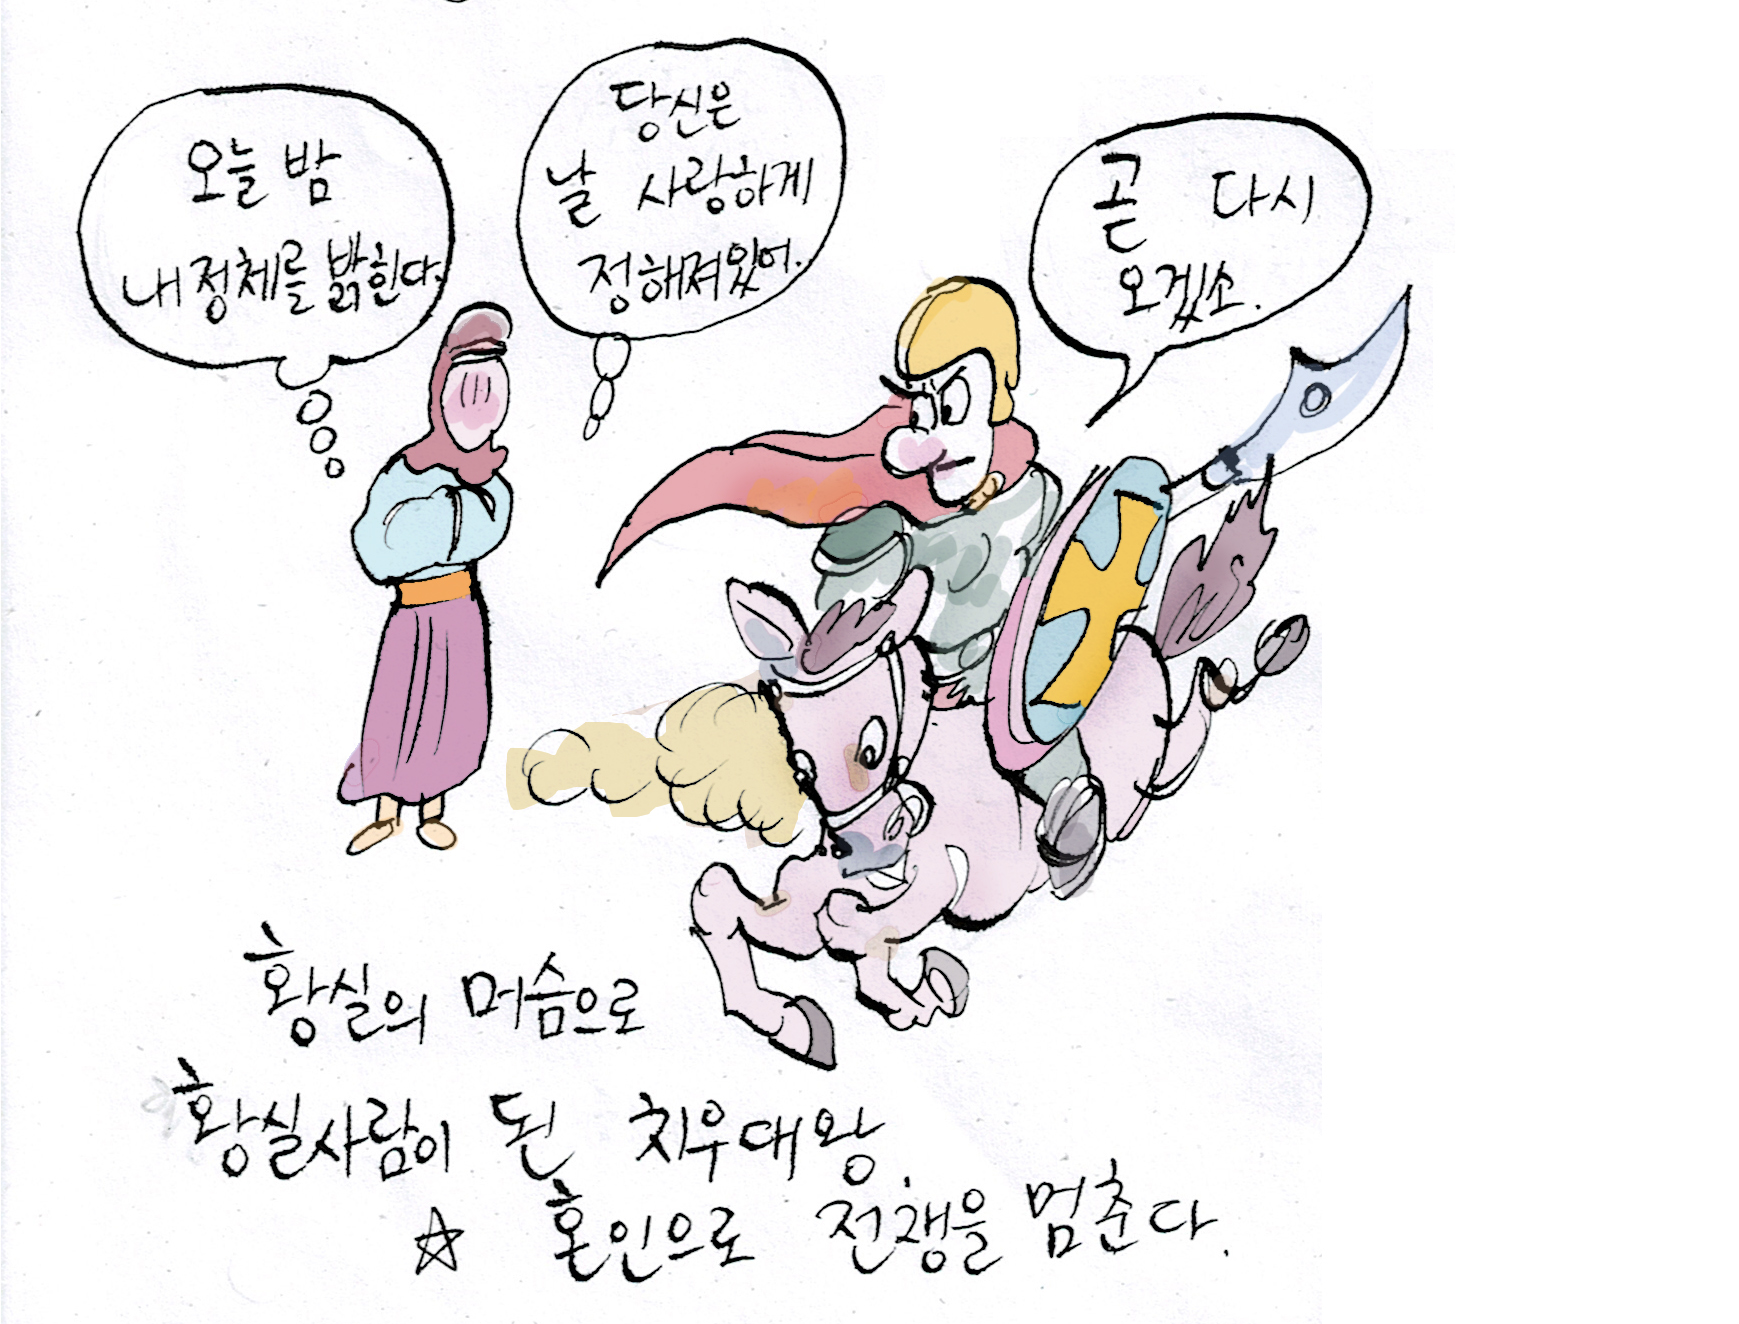 오늘 밤
내 정체를 밝힌다.
당신은
날 사랑하게
정해져있어.
곧 다시
오겠소.
황실의 머슴으로
황실사람이 된 치우대왕.
☆ 혼인으로 전쟁을 멈춘다.